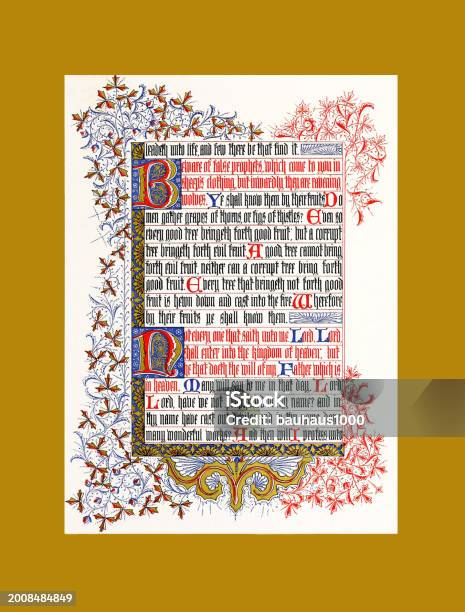 leadeth unto life, and few there be that find it.
Beware of false prophets, which come to you in
sheep's clothing, but inwardly they are ravening
wolves. Ye shall know them by their fruits. Do
men gather grapes of thorns, or figs of thistles? Even so
every good tree bringeth forth good fruit; but a corrupt
tree bringeth forth evil fruit. A good tree cannot bring
forth evil fruit, neither can a corrupt tree bring forth
good fruit. Every tree that bringeth not forth good
fruit is hewn down and cast into the fire. Wherefore
by their fruits ye shall know them.
Not every one that saith unto me Lord, Lord,
shall enter into the kingdom of heaven; but
he that doeth the will of my Father which is
in heaven. Many will say to me in that day, Lord
Lord, have we not name? and in
thy name have cast
many wonderful works? And then will I profess unto
iStock
Credit: bauhaus1000
2008484849